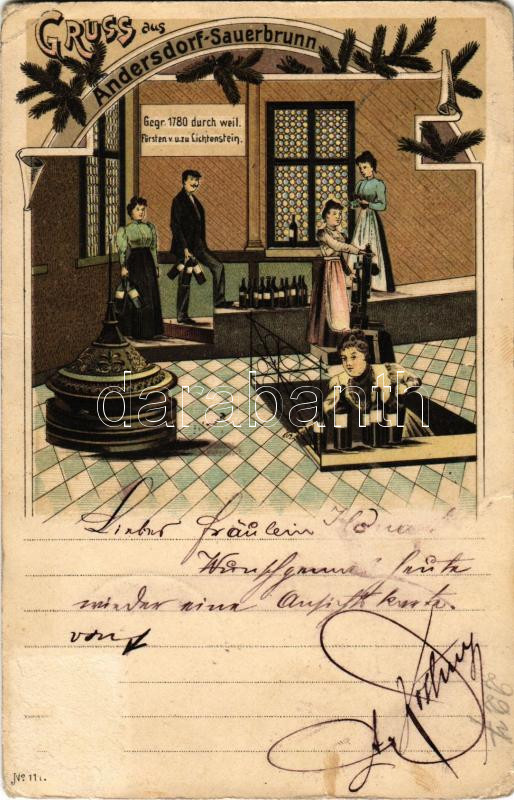 GRUSS aus
Andersdorf-Sauerbrunn
Gegr. 1780 durch weil.
Fürsten v. u. zu Lichtenstein.
darabanth
Liebes Fräulein
Wunschgemäß heute
wieder eine Ansichtskarte.
von
No 111.